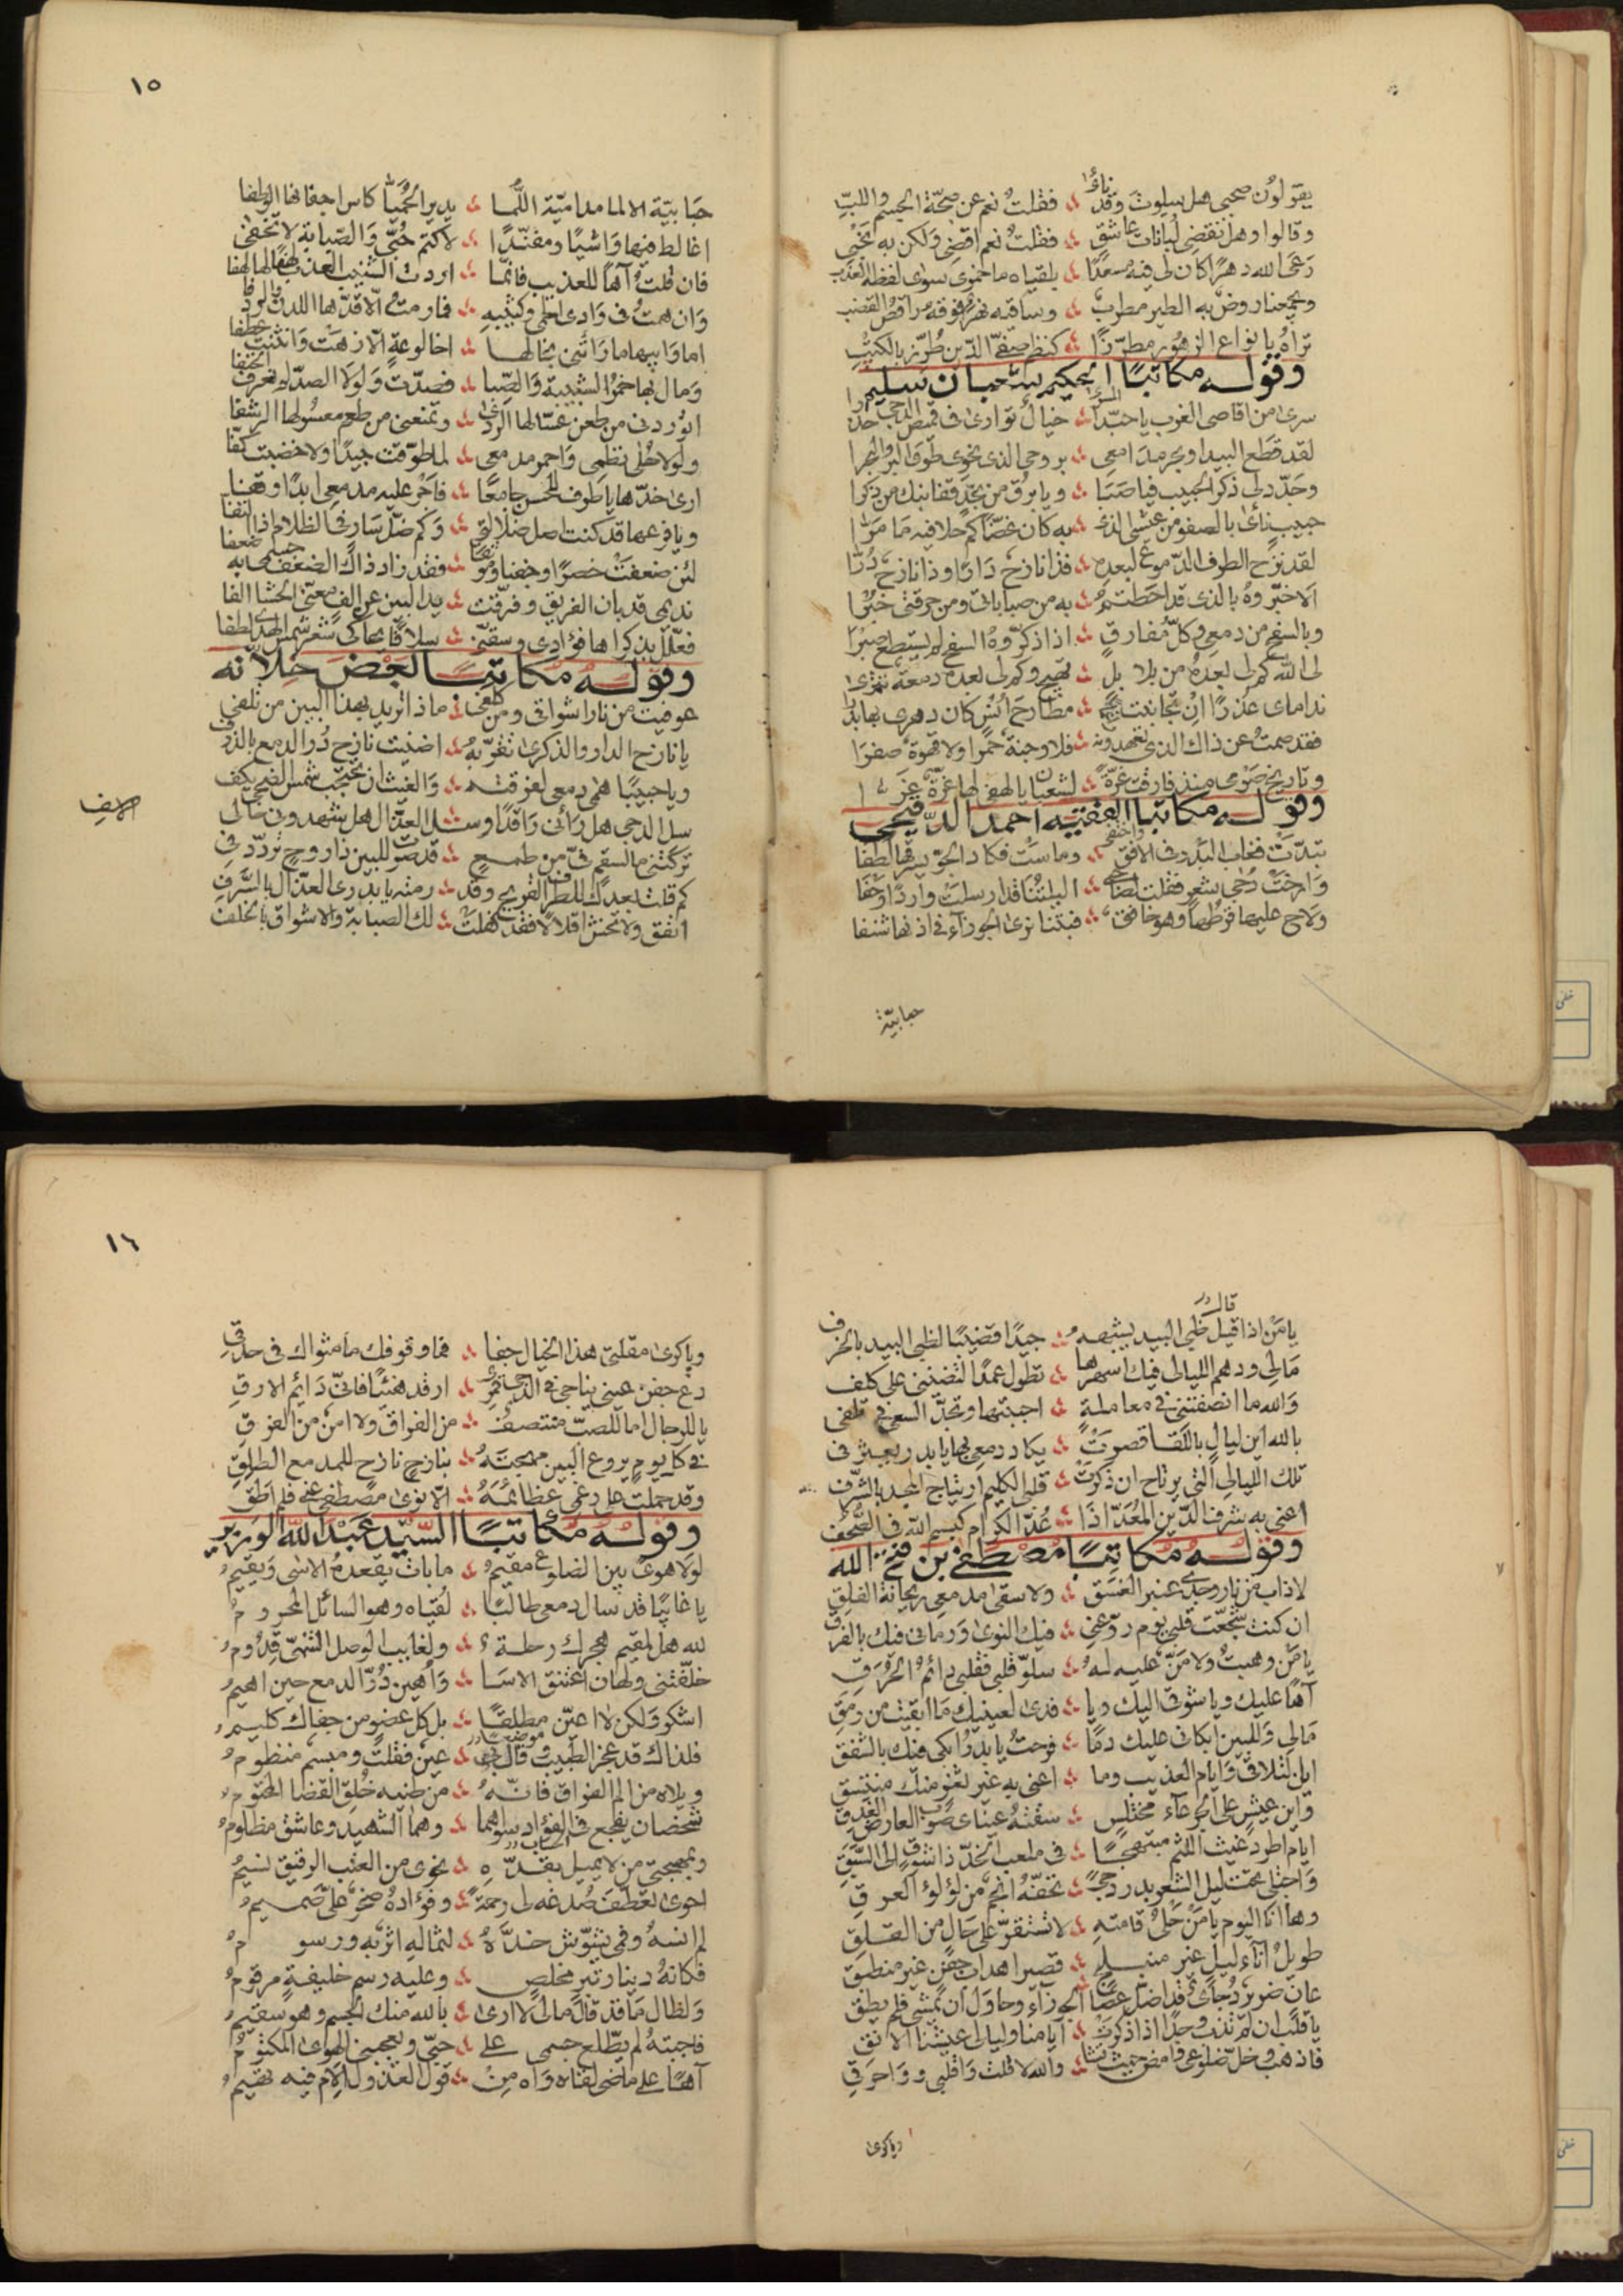 يقولون صحبي هل سلوت وقد نأوا ؞ فقلت نعم عن صحة الجسم واللب
وقالوا وهل تقضي لبانات عاشق ؞ فقلت نعم اقضي ولكن به نحبي
رعى الله دهرا كان لي فيه مسعدا ؞ بلقياه ما خمري سوى لفظه العذب
ويجمعنا روض به الطير مطرب ؞ وساقيه نهر فوقه راقص القضب
تراه بانواع الزهور مطرزا ؞ كنظم صفي الدين طرز بالكتب
وقوله مكاتبا الحكيم شعبان سليم
سرى من اقاصي الغرب يا حبذا المسرا ؞ خيال توارى في قميص الدجى حذرا
لقد قطع البيدا وبحر مدامعي ؞ بروحي الذي نحوي طوى البر والبحرا
وجدد لي ذكر الحبيب فيا صبا ؞ ويا برق من نجد قفا نبك من ذكرا
حبيب نأى بالصفو من عيشي الذي ؞ به كان غضا كم حلا فيه ما مرا
لقد نزح الطرف الدموع لبعده ؞ فذا نازح دارا وذا نازح درا
الا خبروه بالذي قد احطتم ؞ به من صباباتي ومن حرقتي خبرا
وبالسفح من دمعي وكل مفارق ؞ اذا ذكروه السفح لم يستطع صبرا
لي الله كم لي بعده من بلابل ؞ تهيج وكم لي بعده دمعة تترى
نداماي عذرا ان تجانبت ؞ مطارح انس كان دهري بها بدرا
فقد صمت عن ذاك الذي تعهدونه ؞ فلا وجنة حمرا ولا قهوة صفرا
وتاريخ صومي منذ فارقت غرة ؞ لشعبان يا لهفي لها غرة غرا
وقوله مكاتبا الفقيه احمد الدفيحي
تبدت فغاب البدر في الافق واختفى ؞ وماست فكاد الجو يسرقها لطفا
وارخت دجى شعر فقلت لصاحبي ؞ اليلتنا قد ارسلت واردا وحفا
ولاح عليها قرطها وهو خافق ؞ فبتنا نرى الجوزاء في اذنها شنفا
حبابية
١٥
حبابية الالما مدامية اللما ؞ يدير الحميا كاس اجفانها الوطفا
اغالط فيها واشيا ومفندا ؞ لاكتم حبي والصبابة لا تخفى
فان قلت آها للعذيب فانما ؞ اردت الشنيب العذب لهفا لها لهفا
وان همت في وادي الحمى وكثيبه ؞ فما رمت الا قدها اللدن والردفا
اما وابيها ما راتني بخالها ؞ اخا لوعة الا زهت وانثنت عطفا
ومال بها خمر الشبيبة والصبا ؞ فصدت ولولا الصد لم نعرف الحتفا
اتوردني من طعن عسالها الردى ؞ وتمنعني من طعم معسولها الرشفا
ولولا حلى نظمي واحمر مدمعي ؞ لما طوقت جيدا ولا خضبت كفا
ارى خدها يا طوف للحسن جامعا ؞ فاجر عليه مدمعي ابدا وقفا
ويا فرعها قد كنت اصل ضلالتي ؞ وكم ضل سار في الظلام اذا التفا
لئن ضعفت خصرا وجفنا وموثقا ؞ فقد زاد ذاك الضعف جسمي به ضعفا
نديمي قد بان الفريق وفرقت ؞ يد البين عن الف معنى الحشا الفا
فعلل بذكراها فؤادي وسقني ؞ سلافا يحاكي شعر شمس الهدى لطفا
وقوله مكاتبا لبعض خلانه
عوفيت من نار اشواقي ومن كلفي ؞ ماذا تريد بهذا البين من تلفي
يا نازح الدار والذكرى تقربه ؞ اضنيت نازح در الدمع بالذرف
ويا حبيبا همى دمعي لفرقته ؞ والغيث ان تحجب شمس الضحى يكف
سل الدجى هل رأني راقدا وسل ؞ العذال هل شهدوني حالي
تركتني ما لسقم في من طمع ؞ قد صرت للبين ذا روح تردد في
كم قلت بعدك للطرف القريح وقد ؞ رمته يا بدري العذال بالسرف
انفق ولا تخش اقلالا فقد كفلت ؞ لك الصبابة والاشواق بالخلف
يا من اذا قيل ظبي البيد يشبهه ؞ جيدا قضيبا لظبي البيد بالخرف
مالي ودهم الليالي فيك اسهرها ؞ تطول عمدا لتضنيني على كلف
والله ما انصفتني في معاملة ؞ احببتها وتجد السعي في تلفي
بالله اين ليال باللقا قصرت ؞ يكاد دمعي لها يا بدر يعثر في
تلك الليالي التي يرتاح ان ذكرت ؞ قلبي الكليم ارتياح المجد بالشرف
اعني به شرف الدين المعد اذا ؞ عد الكرام كبسم الله في الصحف
وقوله مكاتبا مصطفى بن فتح الله
لا ذاب من نار وجدي عنبر الغسق ؞ ولا سقى مدمعي ريحانة الفلق
ان كنت شجعت قلبي يوم روعني ؞ فيك النوى ورماني فنك بالفرق
يا من وهبت ولا من عليه له ؞ سلو قلبي فقلبي دائم الحرق
آها عليك ويا شوقي اليك ويا ؞ فدى لعينيك ما ابقيت من رمق
مالي وللبين ابكاني عليك دما ؞ فرحت يا بدر ابكي منك بالشفق
اين لتلاقي وايام العذيب وما ؞ اعني به غير ثغر منك منتسق
واين عيش على الجرعاء مختلس ؞ سقته عيناي صوب العارض الغدق
ايام اطرد غيث اللثم مبتهجا ؞ في ملعب الخد ذا شوق الى السبق
واجتلي تحت ليل الشعر بدر دجى ؞ تحفه انجم من لؤلؤ العرق
وها انا اليوم يا من حل قامته ؞ لا تستقر على حال من القلق
طويل آناء ليل غير منبلج ؞ قصير اهداب جفن غير منطبق
عان ضرير دجاي قد اضل عصا ؞ الجوزاء وحاول ان يمشي فلم يطق
يا قلب ان لم تذب وجدا اذا ذكرت ؞ ايامنا وليالي عيشنا الانق
فاذهب وخل ضلوعي وامض حيث تشا ؞ والله لا قلت وا قلبي ووا حرقي
وياكرى
١٦
وياكرى مقلتي هذا الخيال جفا ؞ فما وقوفك ما مثواك في حدقي
دع جفن عيني يناجي في الدجى قمري ؞ ارقد هنيئا فاني دائم الارق
يا للرجال اما للصب منتصف ؞ من الفراق ولا امن من الفرق
في كل يوم يروع البين مهجته ؞ بنازح نازح للمدمع الطلق
وقد حملت على رغمي عظائمه ؞ الا نوى مصطفى عني فلم اطق
وقوله مكاتبا السيد عبد الله الوزير
لولا هوى بين الضلوع مقيم ؞ ما بات يقعده الاسى ويقيم
يا غائبا قد سال دمعي طالبا ؞ لقياه وهو السائل المحروم
لله هل لمقيم هجرك رحلة ؞ ولغايب الوصل الشهي قدوم
خلفتني ولهان اعتنق الاسا ؞ واهين در الدمع حين اهيم
اشكو ولكن لا اعين مطلقا ؞ بل كل عضو من جفاك كليم
فلذاك قد عجز الطبيب وقال ؞ عين فقلت ومبسم منظوم
ويلاه من الم الفراق فانه ؞ من طنبه خلق القضا المحتوم
شخصان يفجع في الفؤاد سلوهما ؞ وهما الشهيد وعاشق مظلوم
وبمهجتي من لا يميل بقده ؞ نحوي من العتب الرقيق نسيم
احوى تعطف صدغه لي رحمة ؞ وفؤاده صخر علي صميم
لم انسه وفمي يشوش خده ؞ لثما له اثر به ورسوم
فكانه دينار تبر مخلص ؞ وعليه رسم خليفة مرقوم
ولطال ما قد قال مالي لا ارى ؞ بالله منك الجسم وهو سقيم
فاجبته لم يطلع جسمي على ؞ حبي ويعجبني الهوى المكتوم
آها على ماضي لقاه وآه من ؞ قول العذول الام فيه تهيم